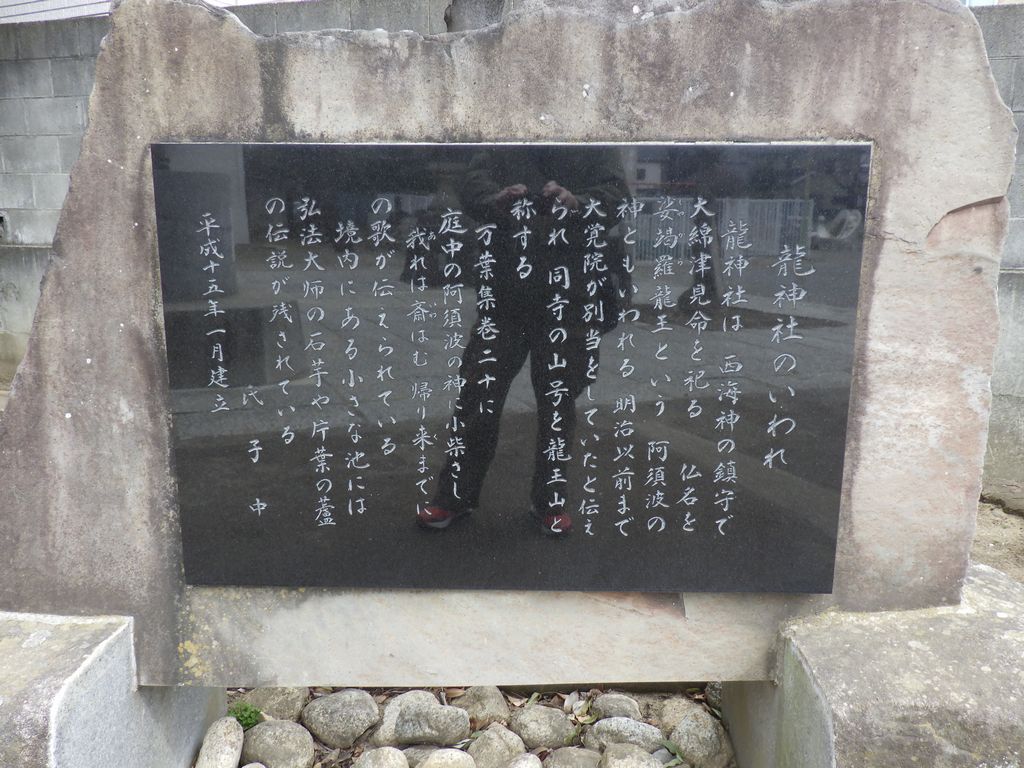 龍神社のいわれ
龍神社は 西海神の鎮守で
大綿津見命を祀る 仏名を
娑竭羅龍王という 阿須波の
神ともいわれる 明治以前まで
大覚院が別当をしていたと伝え
られ 同寺の山号を龍王山と
称する
万葉集巻二十に
庭中の阿須波の神に小柴さし
我れは斎はむ 帰り来までに
の歌が伝えられている
境内にある小さな池には
弘法大師の石芋や片葉の蘆
の伝説が残されている
平成十五年一月建立
氏子中